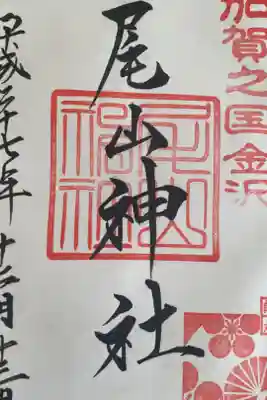 加賀之国金沢
尾山神社
尾山神社
平成二十七年十二月十三日